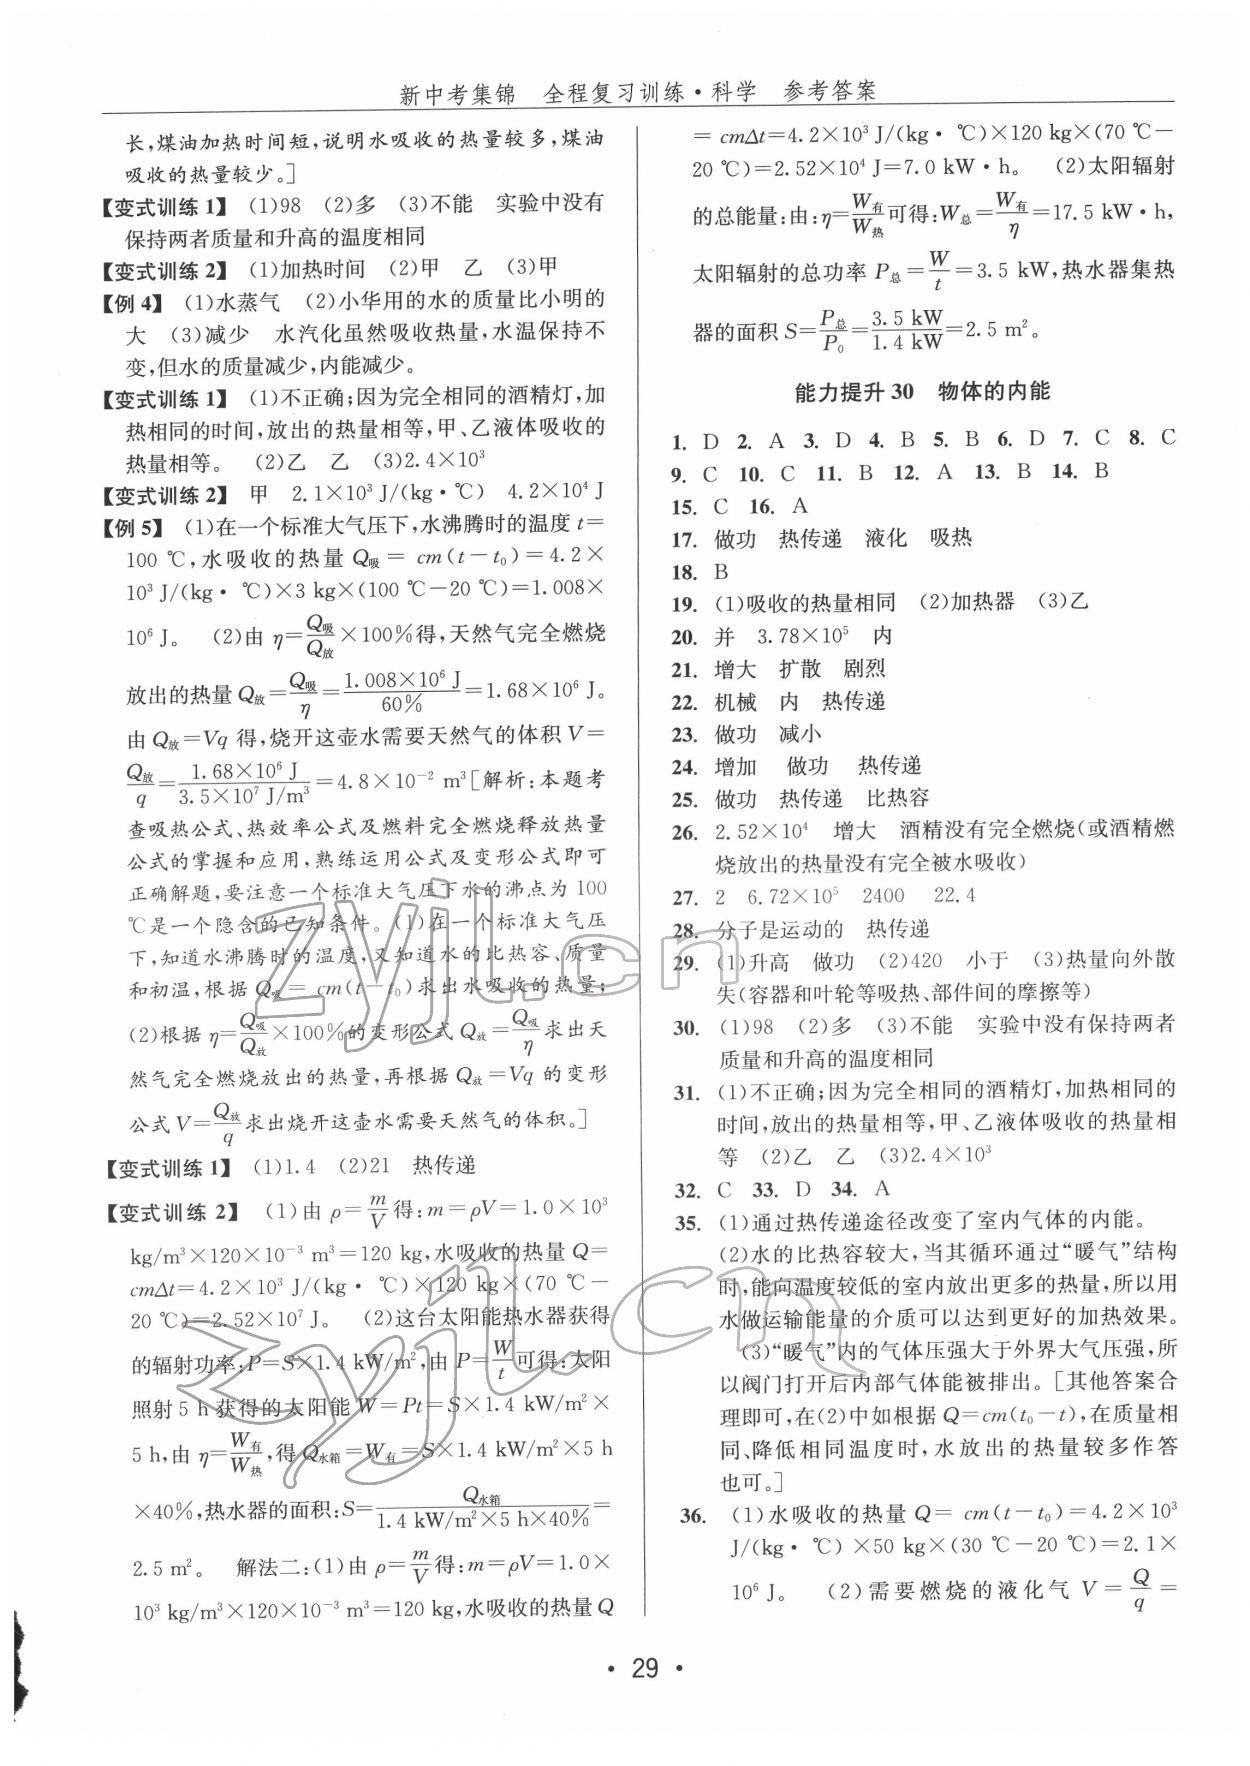 新中考集锦 全程复习训练·科学 参考答案
长,煤油加热时间短,说明水吸收的热量较多,煤油
吸收的热量较少。]
【变式训练1】 (1)98 (2)多 (3)不能 实验中没有
保持两者质量和升高的温度相同
【变式训练2】 (1)加热时间 (2)甲 乙 (3)甲
【例4】 (1)水蒸气 (2)小华用的水的质量比小明的
大 (3)减少 水汽化虽然吸收热量,水温保持不
变,但水的质量减少,内能减少。
【变式训练1】 (1)不正确;因为完全相同的酒精灯,加
热相同的时间,放出的热量相等,甲、乙液体吸收的
热量相等。 (2)乙 乙 (3)2.4×10³
【变式训练2】 甲 2.1×10³ J/(kg·℃) 4.2×10⁴ J
【例5】 (1)在一个标准大气压下,水沸腾时的温度 t=
100 ℃,水吸收的热量 Q吸 = cm(t-t₀)=4.2×
10³ J/(kg· ℃)×3 kg×(100 ℃-20 ℃)=1.008×
10⁶ J。 (2)由 η=Q吸/Q放×100%得,天然气完全燃烧
放出的热量 Q放=Q吸/η=1.008×10⁶ J/60%=1.68×10⁶ J。
由 Q放=Vq 得,烧开这壶水需要天然气的体积 V=
Q放/q=1.68×10⁶ J/3.5×10⁷ J/m³=4.8×10⁻² m³[解析:本题考
查吸热公式、热效率公式及燃料完全燃烧释放热量
公式的掌握和应用,熟练运用公式及变形公式即可
正确解题,要注意一个标准大气压下水的沸点为 100
℃是一个隐含的已知条件。(1)在一个标准大气压
下,知道水沸腾时的温度,又知道水的比热容、质量
和初温,根据 Q吸 = cm(t-t₀)求出水吸收的热量;
(2)根据 η=Q吸/Q放×100%的变形公式 Q放=Q吸/η求出天
然气完全燃烧放出的热量,再根据 Q放=Vq 的变形
公式 V=Q放/q求出烧开这壶水需要天然气的体积。]
【变式训练1】 (1)1.4 (2)21 热传递
【变式训练2】 (1)由 ρ=m/V得:m=ρV=1.0×10³
kg/m³×120×10⁻³ m³=120 kg,水吸收的热量 Q=
cmΔt=4.2×10³ J/(kg· ℃)×120 kg×(70 ℃-
20 ℃)=2.52×10⁷ J。 (2)这台太阳能热水器获得
的辐射功率:P=S×1.4 kW/m²,由 P=W/t可得:太阳
照射 5 h 获得的太阳能 W=Pt=S×1.4 kW/m²×
5 h,由 η=W有/W热,得 Q水箱=W有=S×1.4 kW/m²×5 h
×40%,热水器的面积:S=Q水箱/1.4 kW/m²×5 h×40%=
2.5 m²。 解法二:(1)由 ρ=m/V得:m=ρV=1.0×
10³ kg/m³×120×10⁻³ m³=120 kg,水吸收的热量 Q
= cmΔt=4.2×10³ J/(kg· ℃)×120 kg×(70 ℃-
20 ℃)=2.52×10⁴ J=7.0 kW·h。 (2)太阳辐射
的总能量:由:η=W有/W热可得:W总=W有/η=17.5 kW·h,
太阳辐射的总功率 P总=W/t=3.5 kW,热水器集热
器的面积 S=P总/P₀=3.5 kW/1.4 kW=2.5 m²。
能力提升30 物体的内能
1. D 2. A 3. D 4. B 5. B 6. D 7. C 8. C
9. C 10. C 11. B 12. A 13. B 14. B
15. C 16. A
17. 做功 热传递 液化 吸热
18. B
19. (1)吸收的热量相同 (2)加热器 (3)乙
20. 并 3.78×10⁵ 内
21. 增大 扩散 剧烈
22. 机械 内 热传递
23. 做功 减小
24. 增加 做功 热传递
25. 做功 热传递 比热容
26. 2.52×10⁴ 增大 酒精没有完全燃烧(或酒精燃
烧放出的热量没有完全被水吸收)
27. 2 6.72×10⁵ 2400 22.4
28. 分子是运动的 热传递
29. (1)升高 做功 (2)420 小于 (3)热量向外散
失(容器和叶轮等吸热、部件间的摩擦等)
30. (1)98 (2)多 (3)不能 实验中没有保持两者
质量和升高的温度相同
31. (1)不正确;因为完全相同的酒精灯,加热相同的
时间,放出的热量相等,甲、乙液体吸收的热量相
等 (2)乙 乙 (3)2.4×10³
32. C 33. D 34. A
35. (1)通过热传递途径改变了室内气体的内能。
(2)水的比热容较大,当其循环通过“暖气”结构
时,能向温度较低的室内放出更多的热量,所以用
水做运输能量的介质可以达到更好的加热效果。
(3)“暖气”内的气体压强大于外界大气压强,所
以阀门打开后内部气体能被排出。[其他答案合
理即可,在(2)中如根据 Q=cm(t₀-t),在质量相
同、降低相同温度时,水放出的热量较多作答
也可。]
36. (1)水吸收的热量 Q= cm(t-t₀)=4.2×10³
J/(kg· ℃)×50 kg×(30 ℃-20 ℃)=2.1×
10⁶ J。 (2)需要燃烧的液化气 V=Q/q=
·29·
zyjl.cn
zyjl.cn